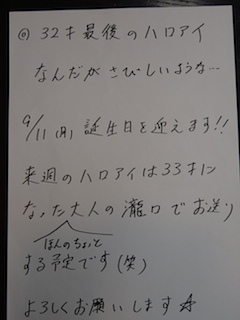 ◎ 32才最後のハロアイ
なんだがさびしいような…
9/11(月)誕生日を迎えます!!
来週のハロアイは33才に
なった大人の瀧口でお送り
ほんのちょっと
する予定です(笑)
よろしくお願いします☆